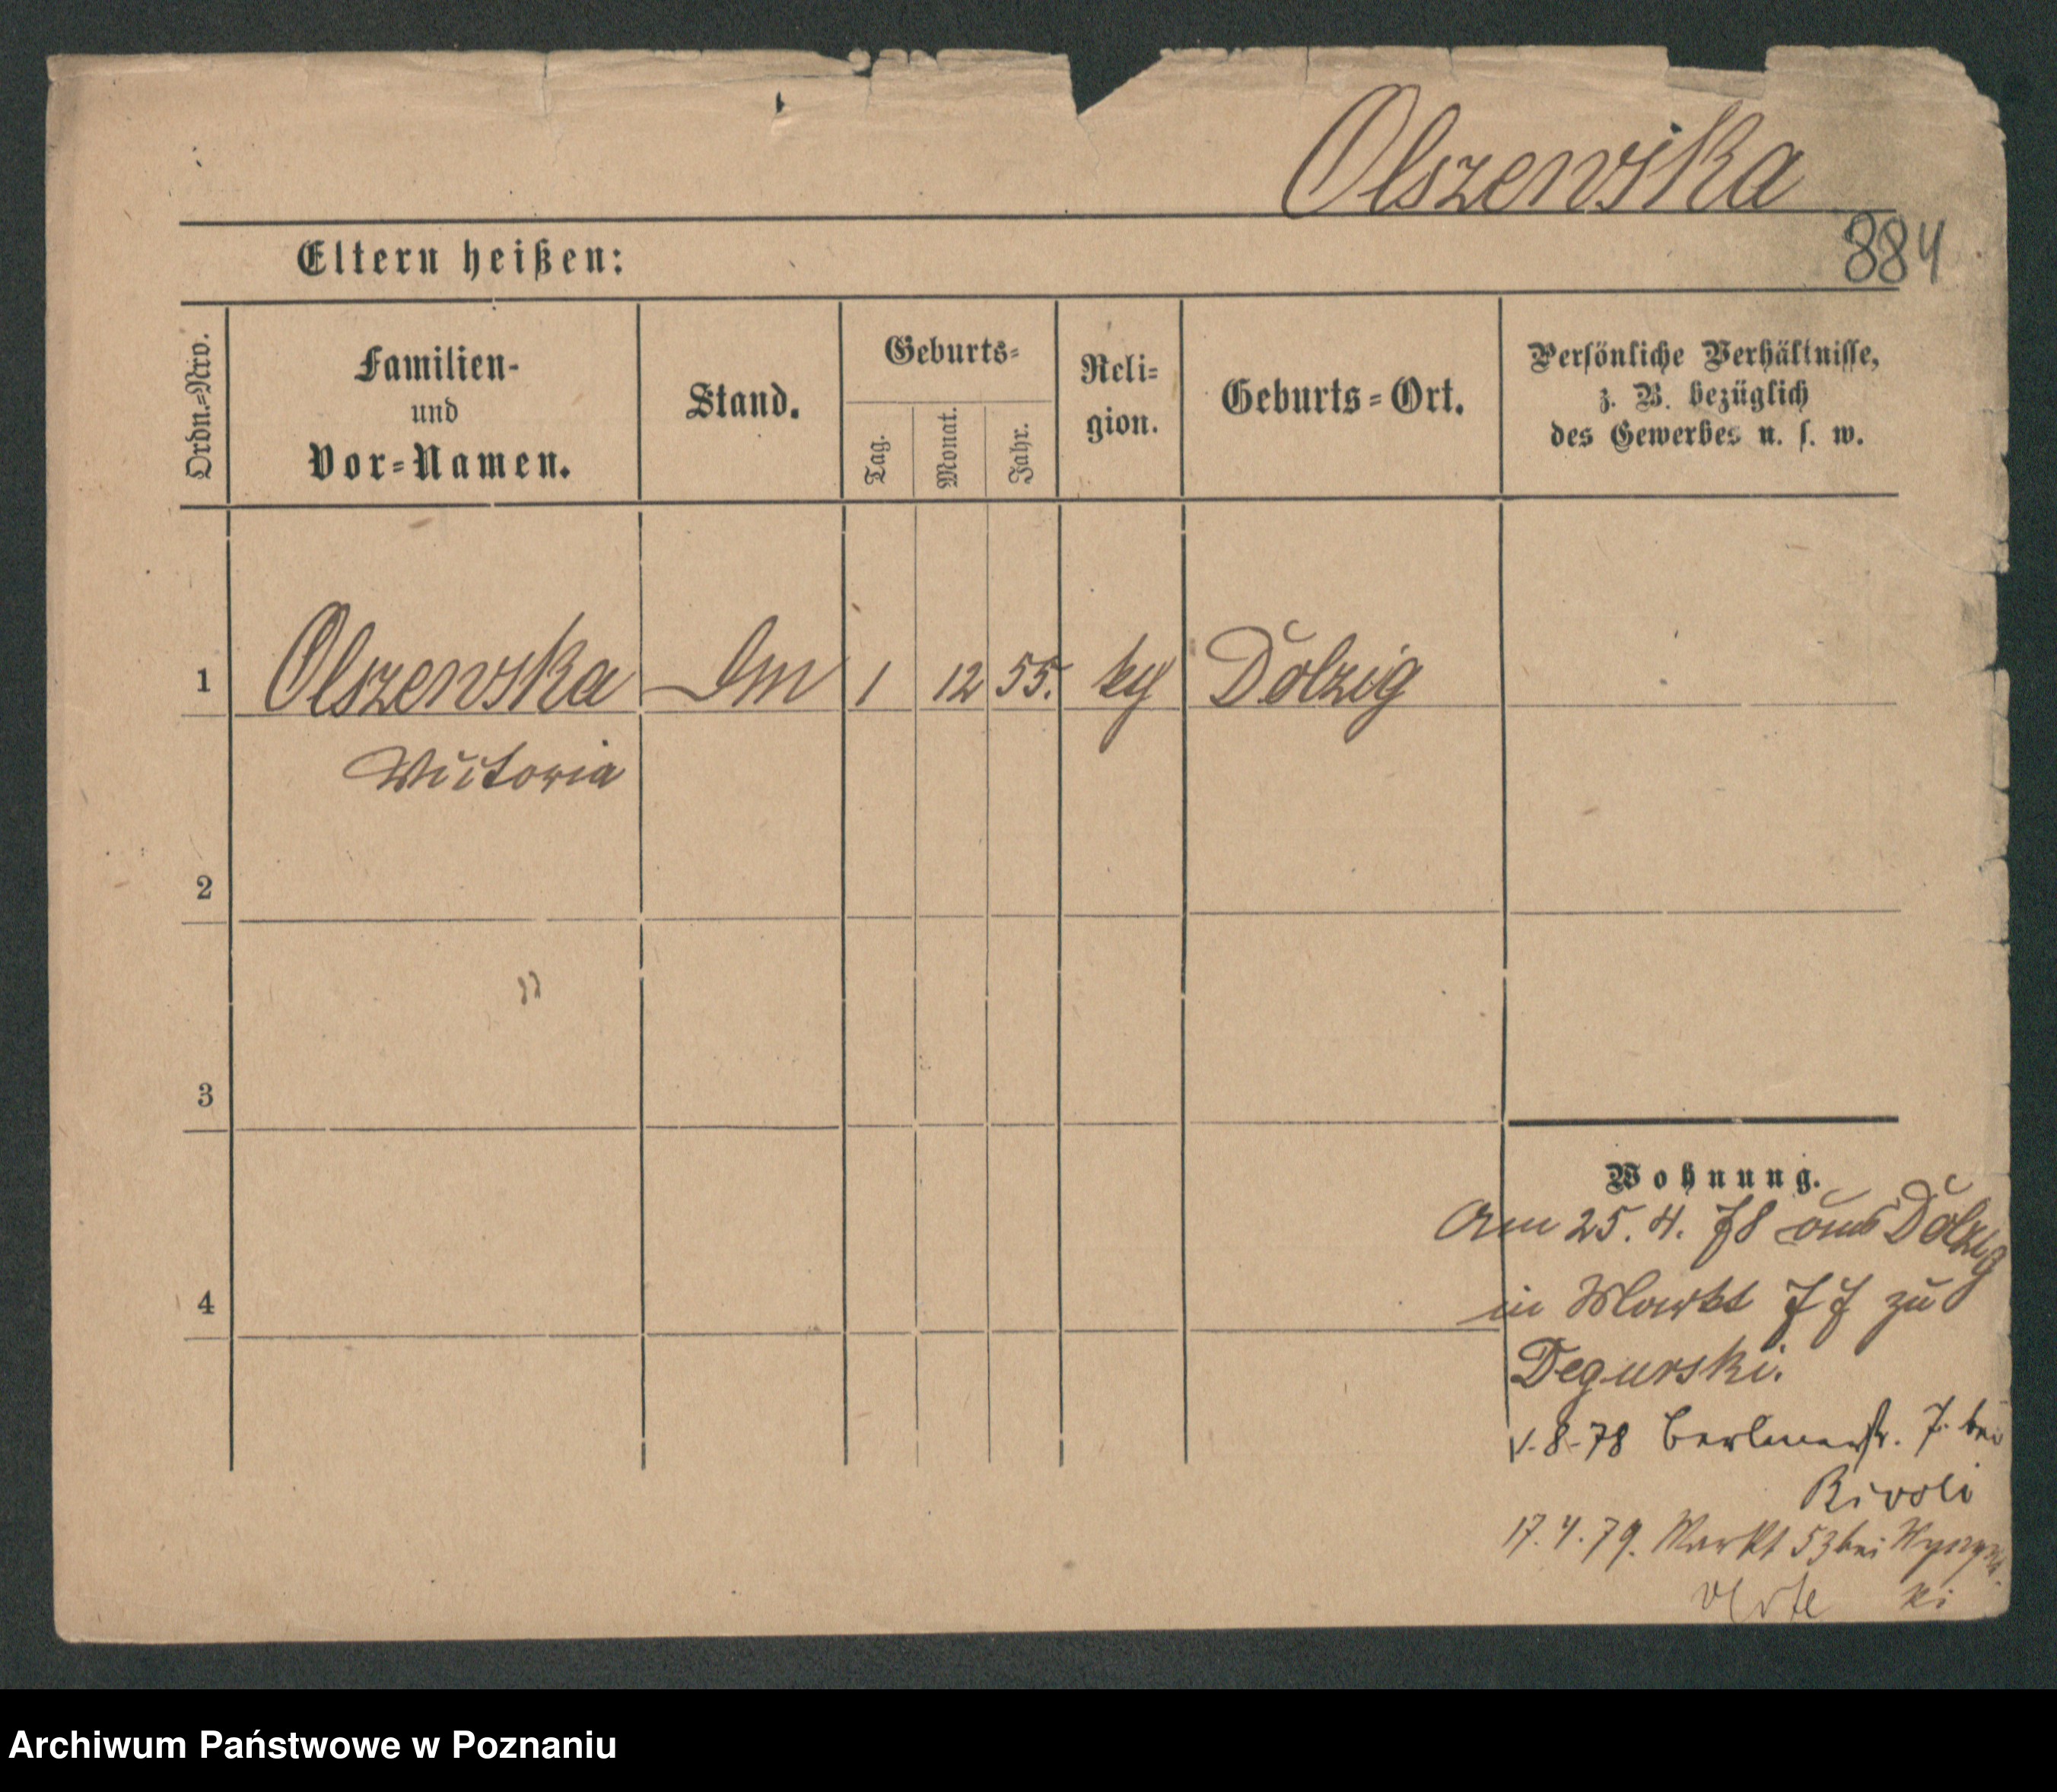 Olszewska
884
Eltern heißen:
Ordn.-Nro.
Familien-
und
Vor-Namen.
Stand.
Geburts-
Tag.
Monat.
Jahr.
Reli-
gion.
Geburts-Ort.
Persönliche Verhältnisse,
z. B. bezüglich
des Gewerbes u. s. w.
1 Olszewska 1 12 55. Dolzig
Victoria
2
3
4
Wohnung.
Am 25. 4. 78 aus Dolzig
in Markt 77 zu
Degurski.
1.8.78 Berlinerstr. 7. bei
Rivoli
17.4.79. Markt 53 bei
ki
Archiwum Państwowe w Poznaniu